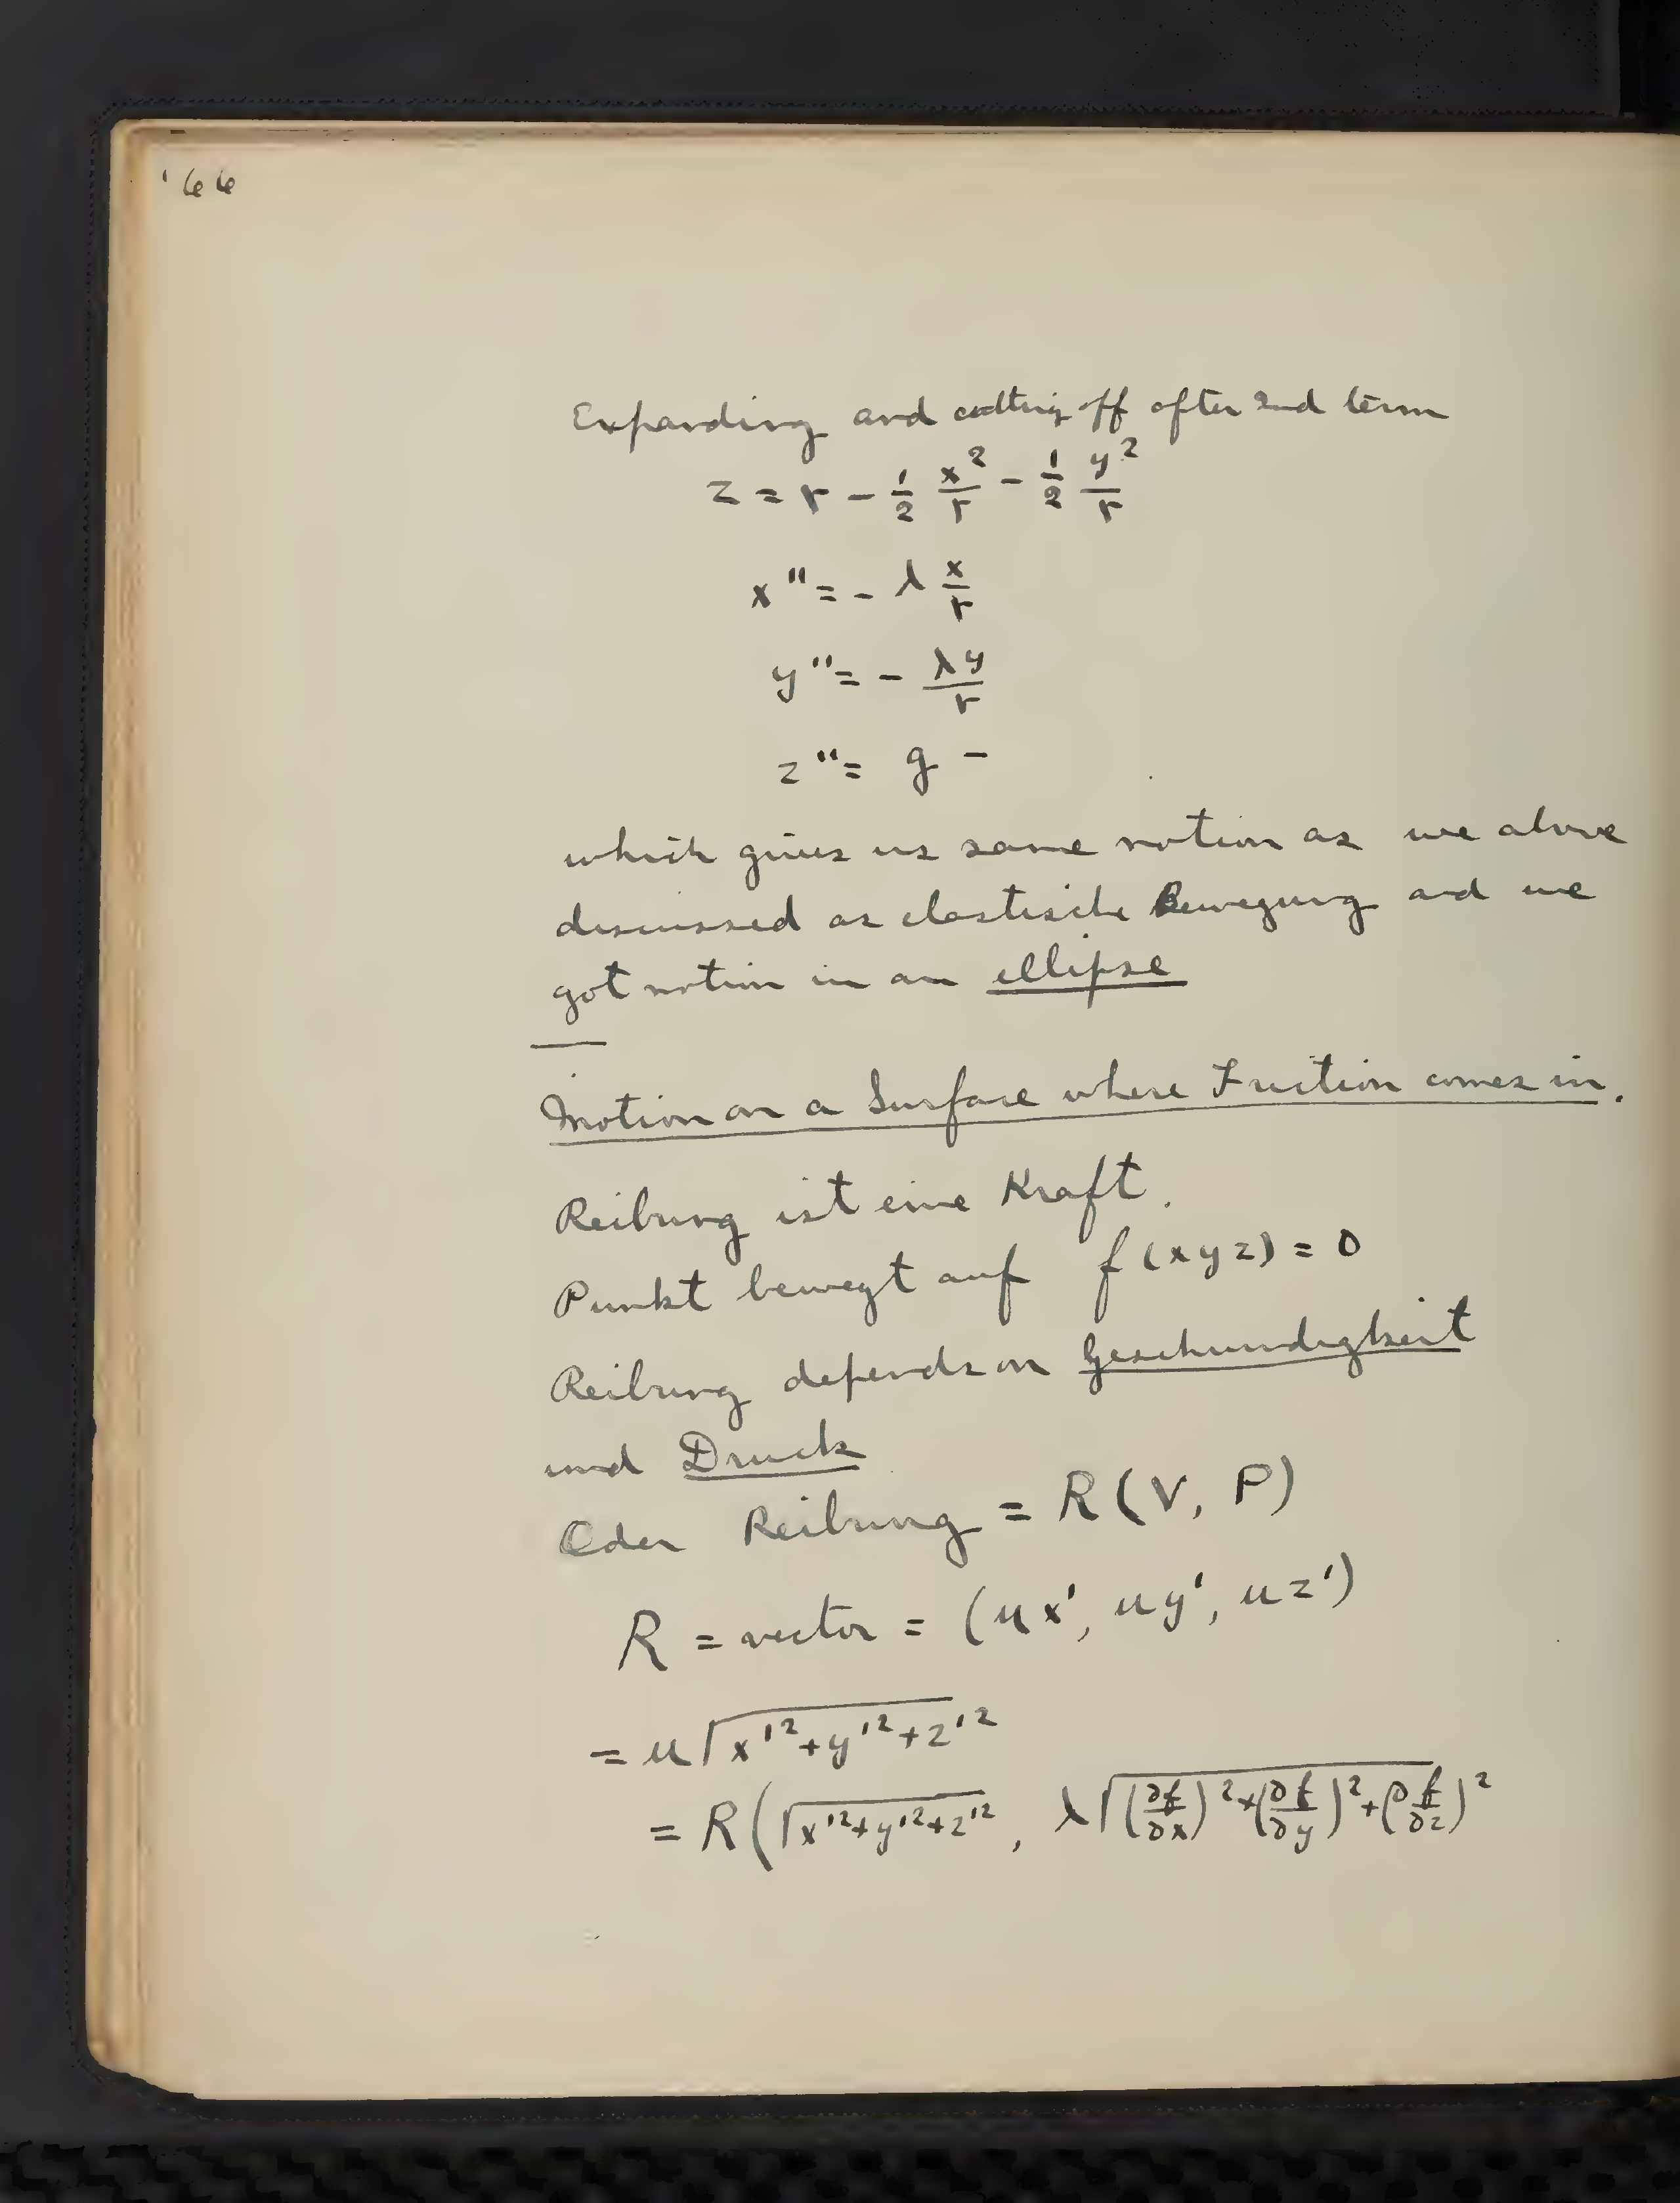 166
Expanding and cutting off after 2nd term
z = r - 1/2 x²/r - 1/2 y²/r
x'' = - λ x/r
y'' = - λy/r
z'' = g -
which gives us same motion as we above
discussed as elastische Bewegung and we
got motion in an ellipse
Motion on a Surface where Friction comes in.
Reibung ist eine Kraft.
Punkt bewegt auf f(xyz) = 0
Reibung depends on Geschwindigkeit
und Druck
Oder Reibung = R(V, P)
R = vector = (ux', uy', uz')
= u√(x'²+y'²+z'²)
= R(√(x'²+y'²+z'²), λ√((∂f/∂x)²+(∂f/∂y)²+(∂f/∂z)²)